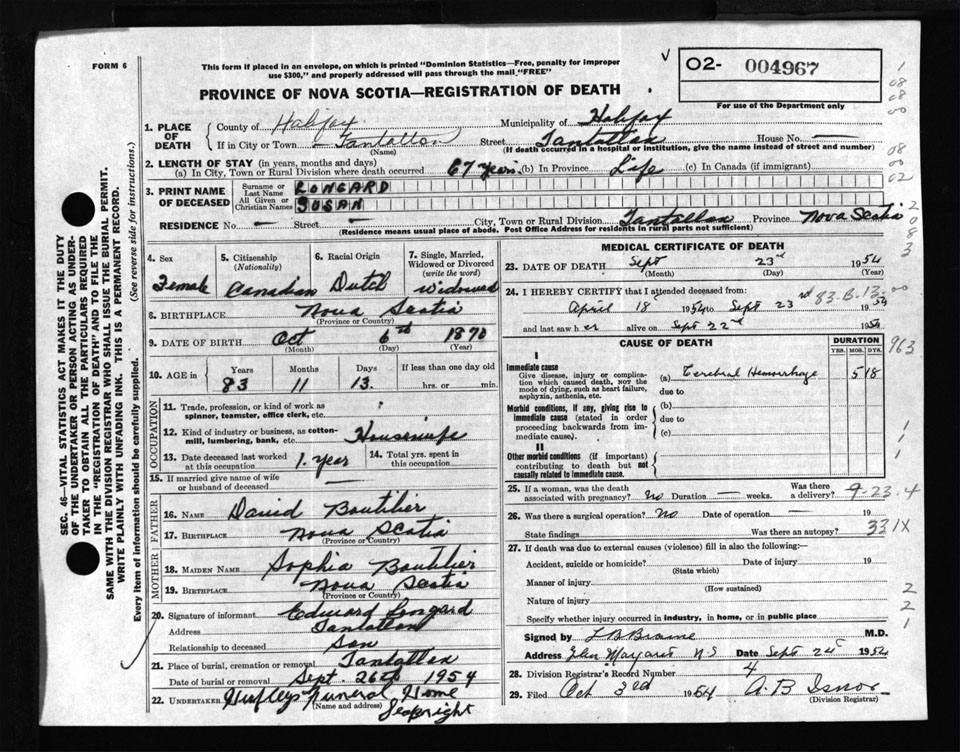 FORM 6
This form if placed in an envelope, on which is printed "Dominion Statistics—Free, penalty for improper
use $300," and properly addressed will pass through the mail "FREE"
02- 004967
For use of the Department only
PROVINCE OF NOVA SCOTIA—REGISTRATION OF DEATH
1. PLACE OF DEATH County of Halifax Municipality of Halifax
If in City or Town — Tantallon Street Tantallon House No. —
(Name) (If death occurred in a hospital or institution, give the name instead of street and number)
2. LENGTH OF STAY (in years, months and days)
(a) In City, Town or Rural Division where death occurred 67 years (b) In Province Life (c) In Canada (if immigrant)
3. PRINT NAME OF DECEASED Surname or Last Name LONGARD
All Given or Christian Names SUSAN
RESIDENCE No. — Street — City, Town or Rural Division Tantallon Province Nova Scotia
(Residence means usual place of abode. Post Office Address for residents in rural parts not sufficient)
4. Sex 5. Citizenship (Nationality) 6. Racial Origin 7. Single, Married, Widowed or Divorced (write the word)
Female Canadian Dutch Widowed
8. BIRTHPLACE Nova Scotia
(Province or Country)
9. DATE OF BIRTH Oct 6th 1870
(Month) (Day) (Year)
10. AGE in Years Months Days If less than one day old
83 11 13 hrs. or min.
OCCUPATION
11. Trade, profession, or kind of work as spinner, teamster, office clerk, etc.
12. Kind of industry or business, as cotton-mill, lumbering, bank, etc. Housewife
13. Date deceased last worked at this occupation 1. year 14. Total yrs. spent in this occupation
15. If married give name of wife or husband of deceased
FATHER
16. NAME David Boutilier
17. BIRTHPLACE Nova Scotia
(Province or Country)
MOTHER
18. MAIDEN NAME Sophia Boutilier
19. BIRTHPLACE Nova Scotia
(Province or Country)
20. Signature of informant Edward Longard
Address Tantallon
Relationship to deceased Son
21. Place of burial, cremation or removal Tantallon
Date of burial or removal Sept. 26th 1954
22. UNDERTAKER Funeral Home
(Name and address) Seabright
MEDICAL CERTIFICATE OF DEATH
23. DATE OF DEATH Sept 23rd 1954
(Month) (Day) (Year)
24. I HEREBY CERTIFY that I attended deceased from:
April 18 1954 to Sept 23rd 1954
83.B.13.00
and last saw her alive on Sept 22nd 1954
CAUSE OF DEATH DURATION
YRS. MOS. DYS.
I
Immediate cause
Give disease, injury or complication which caused death, not the mode of dying, such as heart failure, asphyxia, asthenia, etc.
(a) Cerebral Hemorrhage 5 18
due to
Morbid conditions, if any, giving rise to immediate cause (stated in order proceeding backwards from immediate cause).
(b)
due to
(c)
II
Other morbid conditions (if important) contributing to death but not causally related to immediate cause.
25. If a woman, was the death associated with pregnancy? no Duration — weeks. Was there a delivery?
9-23-4
26. Was there a surgical operation? no Date of operation — 19
State findings Was there an autopsy?
331X
27. If death was due to external causes (violence) fill in also the following:—
Accident, suicide or homicide? Date of injury 19
(State which)
Manner of injury
(How sustained)
Nature of injury
Specify whether injury occurred in industry, in home, or in public place
Signed by M.D.
Address Margaret NS Date Sept 25 1954
28. Division Registrar's Record No. 4
29. Filed Oct 3rd 1954 A.B Isnor
(Division Registrar)
SEC. 46—VITAL STATISTICS ACT MAKES IT THE DUTY
OF THE UNDERTAKER OR PERSON ACTING AS UNDER-
TAKER TO OBTAIN ALL THE PARTICULARS REQUIRED
IN THE "REGISTRATION OF DEATH" AND TO FILE THE
SAME WITH THE DIVISION REGISTRAR WHO SHALL ISSUE THE BURIAL PERMIT.
WRITE PLAINLY WITH UNFADING INK. THIS IS A PERMANENT RECORD.
Every item of information should be carefully supplied. (See reverse side for instructions.)
1
08
08
00
08
00
02
2
0
8
3
963
1
1
1
2
2
1